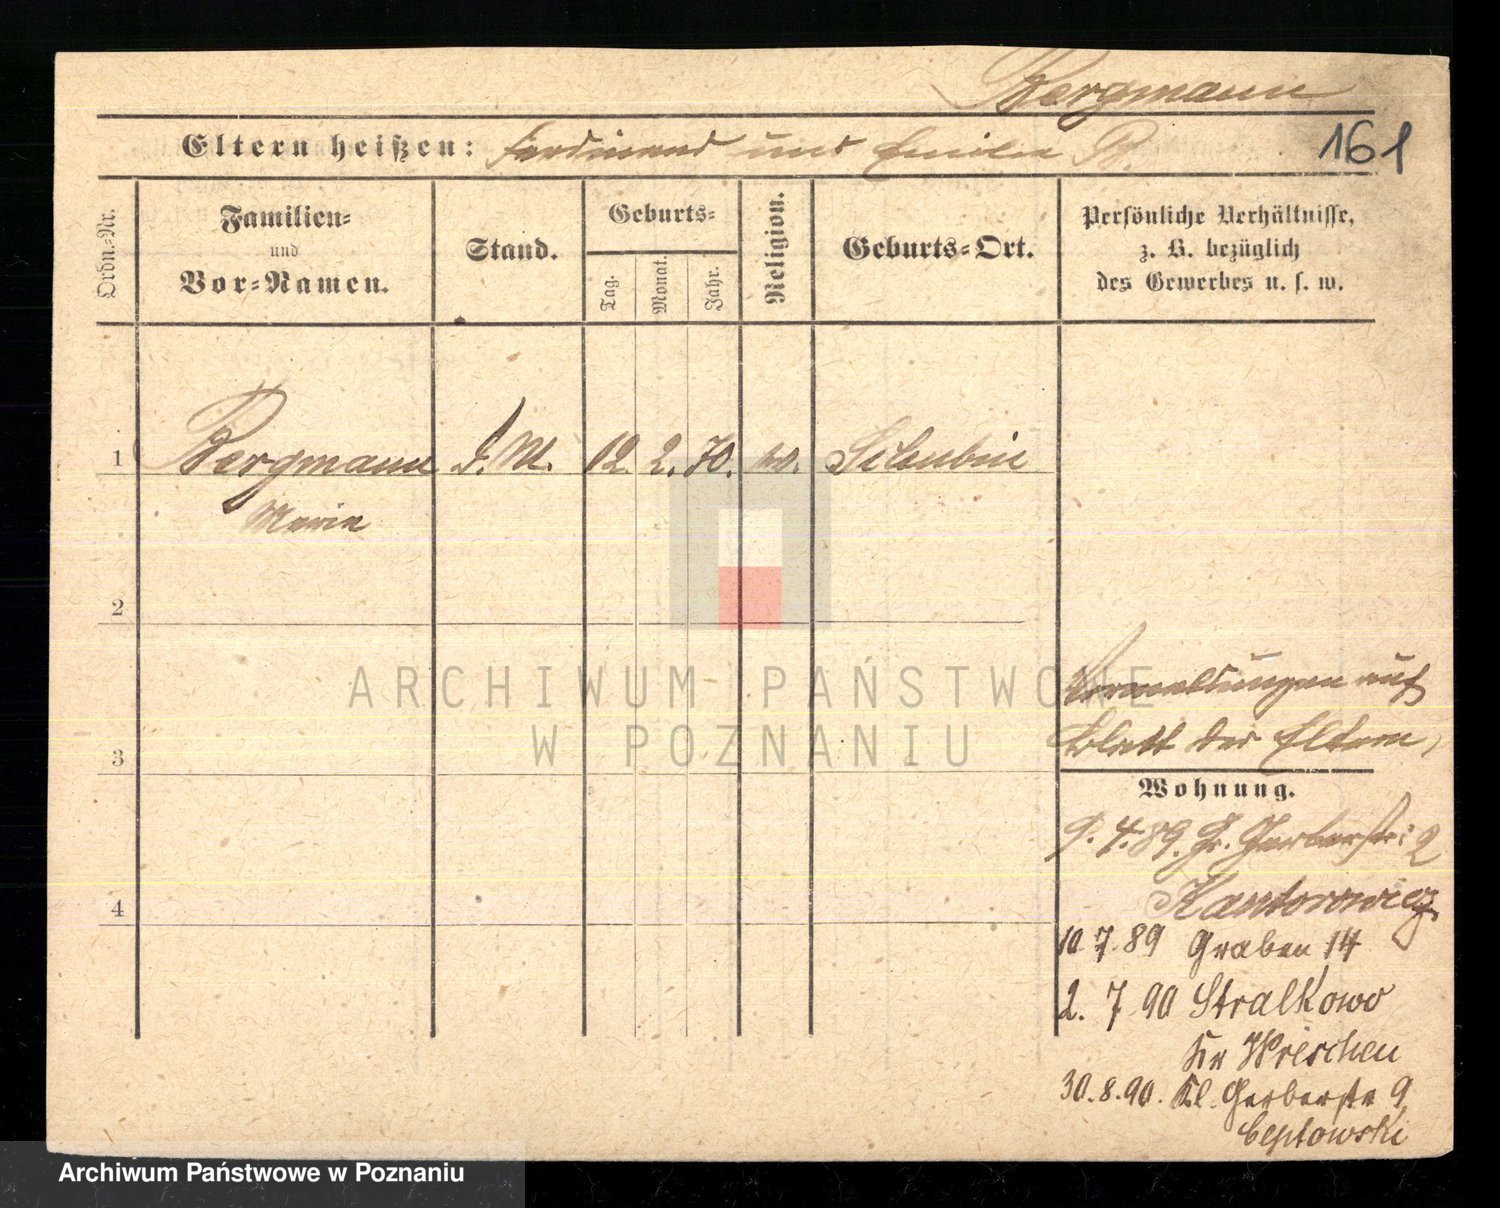 Bergmann
161
Eltern heißen: Ferdinand und Emilie
Ordn.-Nr.
Familien-
und
Vor-Namen.
Stand.
Geburts-
Tag.
Monat.
Jahr.
Religion.
Geburts-Ort.
Persönliche Verhältnisse,
z. B. bezüglich
des Gewerbes u. s. w.
1 Bergmann D. M. 12. 2. 70. Schubin
Marie
2
3
4
auf
Blatt der Eltern,
Wohnung.
9. 4. 89. Gr. Gerberstr: 2
Kantorowicz
10. 7. 89 Graben 14
2. 7 90 Stralkowo
Kr Wreschen
30. 8. 90. Kl. Gerberstr 9
ARCHIWUM PAŃSTWOWE
W POZNANIU
Archiwum Państwowe w Poznaniu